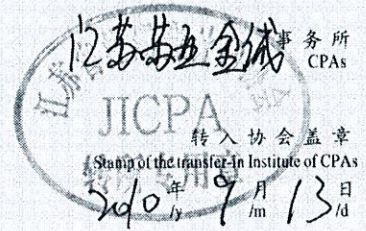 江苏苏亚金诚 事务所
CPAs
JICPA
转入协会盖章
Stamp of the transfer-in Institute of CPAs
2010 年 /y 9 月 /m 13 日 /d